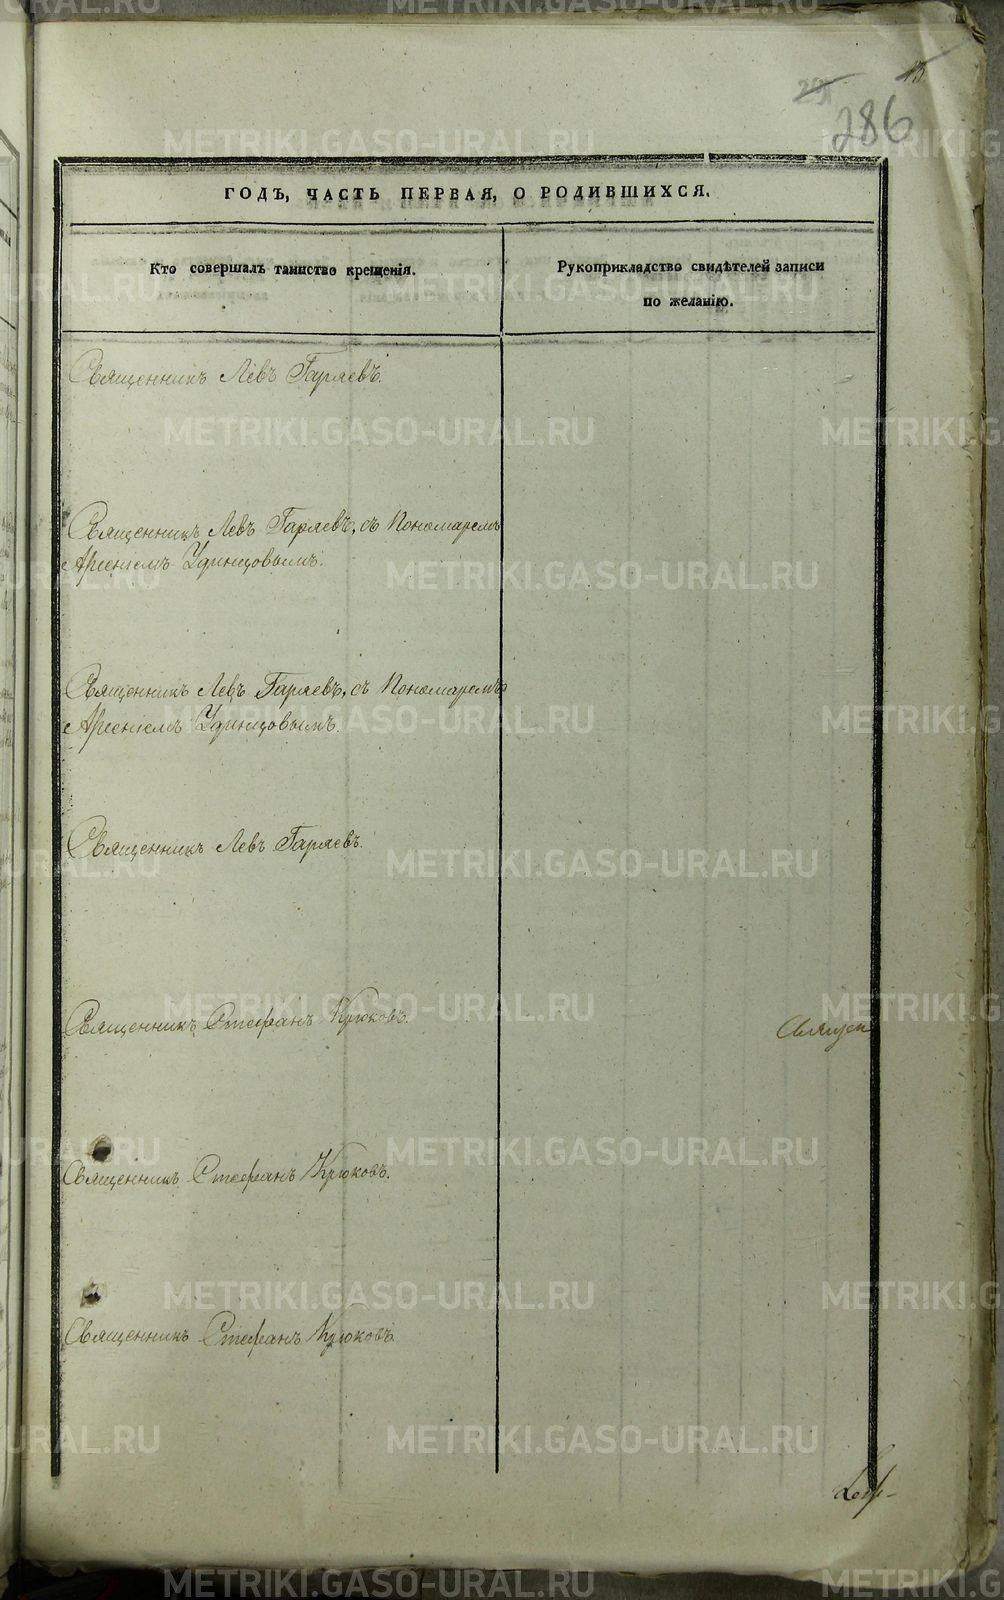 286
ГОДЪ, ЧАСТЬ ПЕРВАЯ, О РОДИВШИХСЯ.
Кто совершалъ таинство крещенія.
Рукоприкладство свидѣтелей записи
по желанію.
Священникъ Левъ Гаряевъ.
Священникъ Левъ Гаряевъ, съ Пономаремъ
Арсеніемъ Удинцовымъ.
Священникъ Левъ Гаряевъ, съ Пономаремъ
Арсеніемъ Удинцовымъ.
Священникъ Левъ Гаряевъ.
Священникъ Стефанъ Крюковъ.
Священникъ Стефанъ Крюковъ.
Священникъ Стефанъ Крюковъ.
METRIKI.GASO-URAL.RU